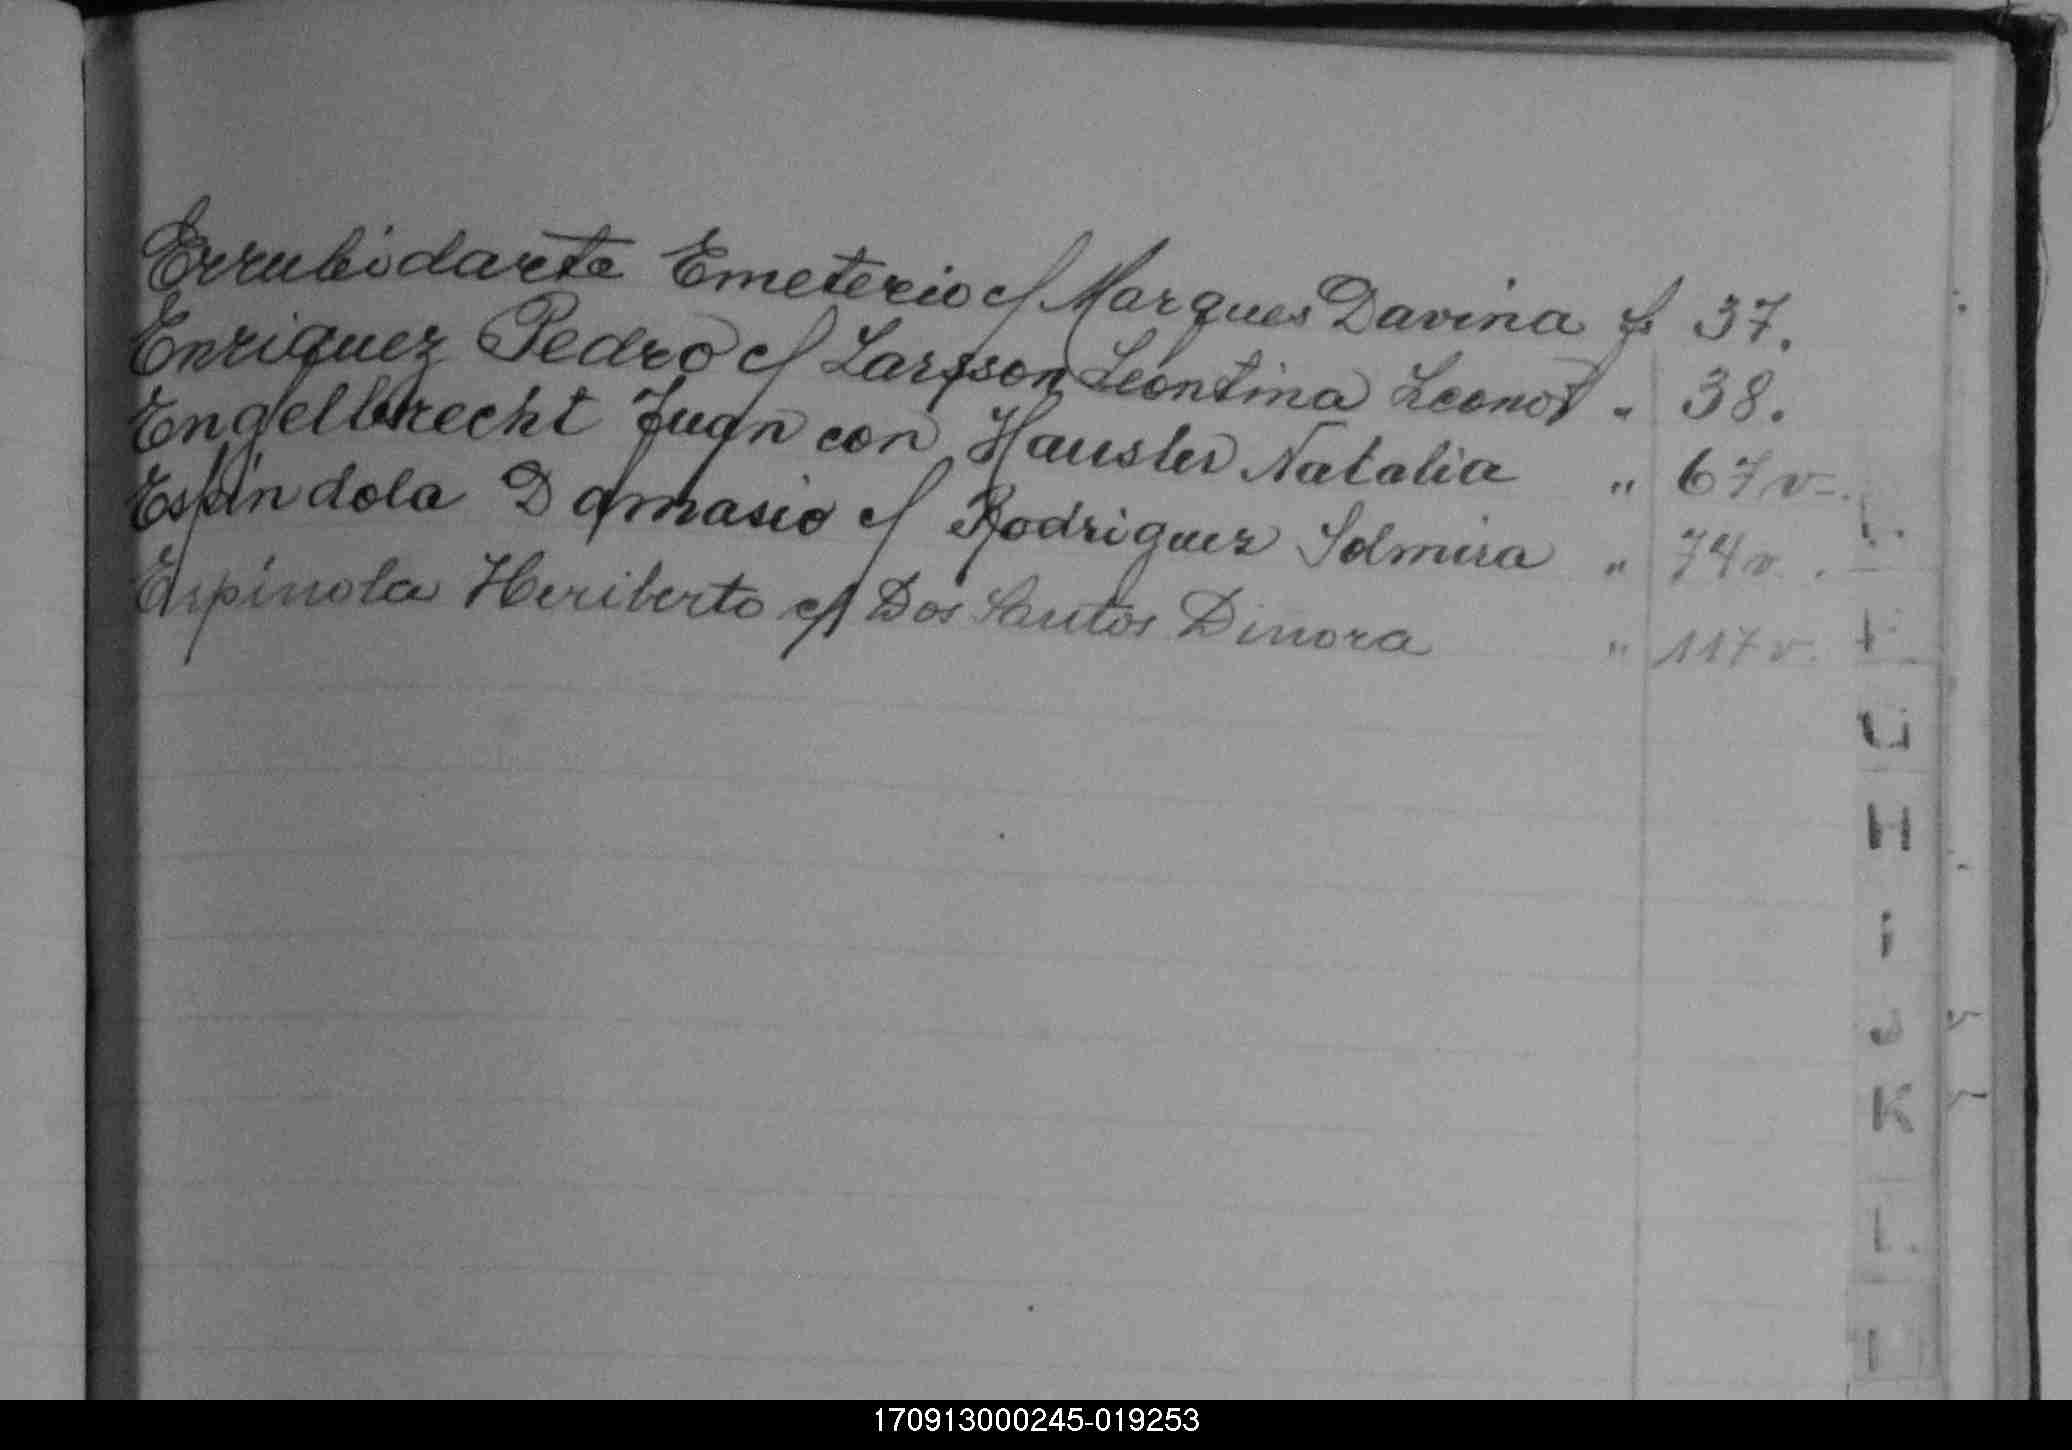 Errubidarte Emeterio c/ Marques Davina fs 37.
Enriquez Pedro c/ Larsson Leontina Leonor " 38.
Engelbrecht Juan con Hausler Natalia " 67 v-.
Espíndola Damasio c/ Rodriguez Idmira " 74 v.
Espínola Heriberto c/ Dos Santos Dinora " 117 v.
H
I
J
K
L
170913000245-019253